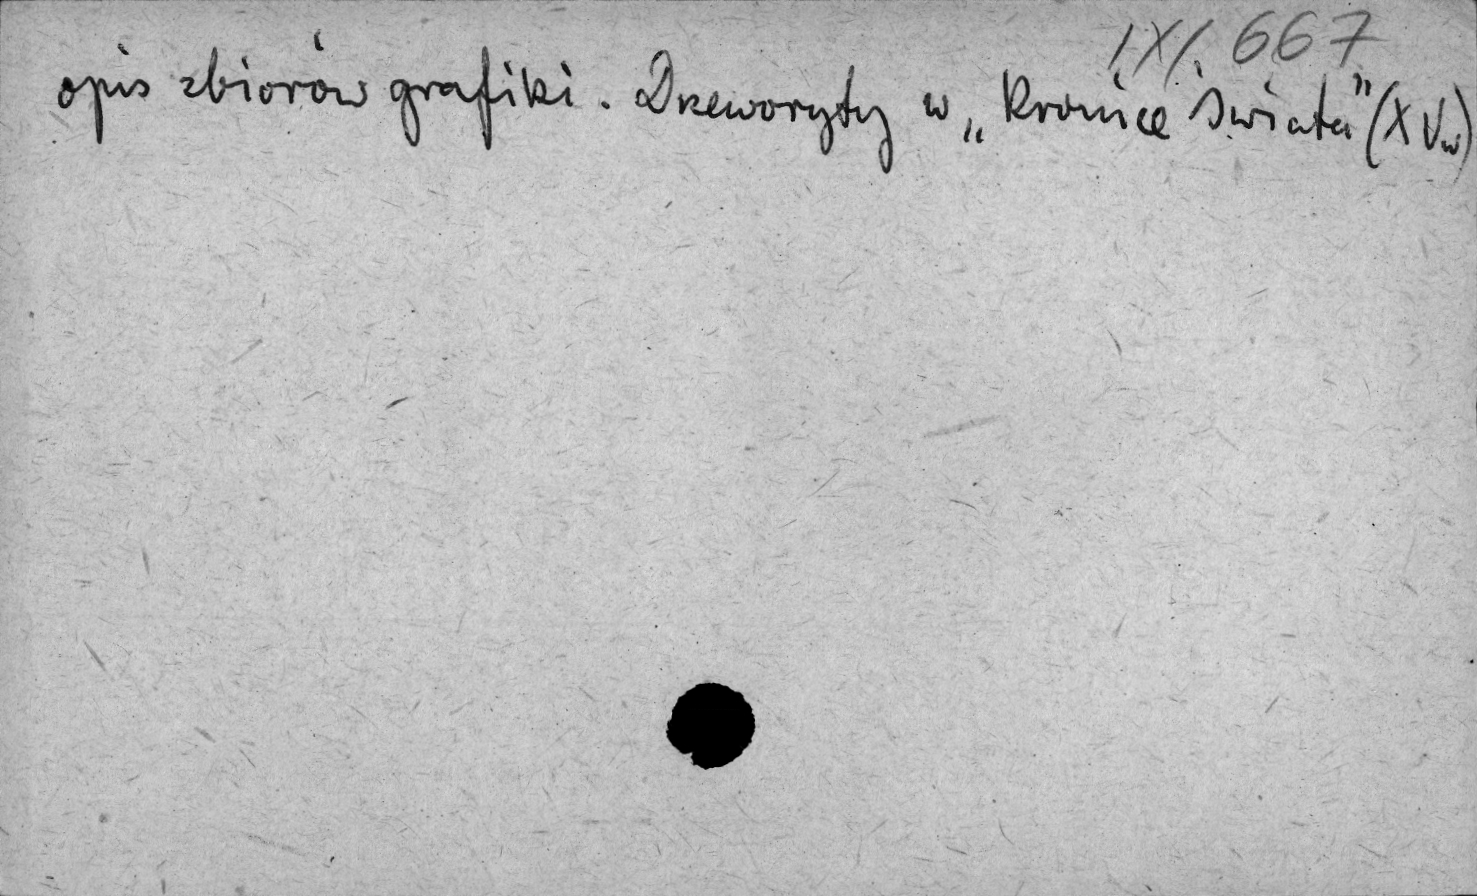 IX/. 667
opis zbiorów grafiki. Drzeworyty w „Kronice Świata” (XVw)